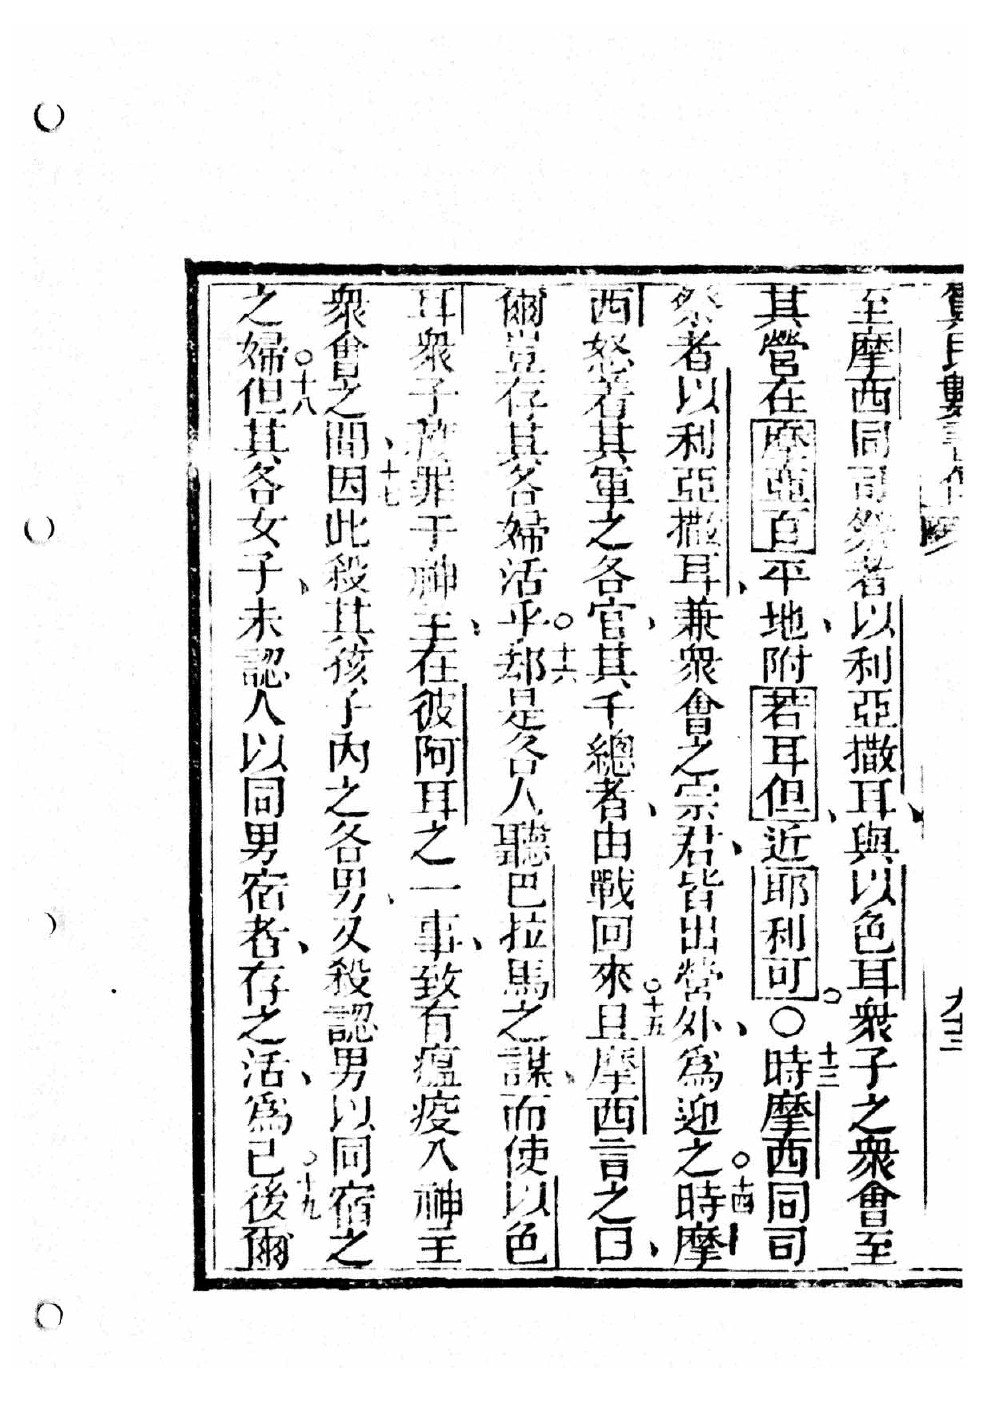 數
九十三
至摩西同司祭者以利亞撒耳與以色耳衆子之衆會至
其營在摩亞百平地附若耳但近耶利可〇○十三時摩西同司
祭者以利亞撒耳兼衆會之宗君皆出營外爲迎之○十四時摩
西怒着其軍之各官其千總者由戰回來○十五且摩西言之曰
爾豈存其各婦活乎○十六却是各人聽巴拉馬之謀而使以色
耳衆子放罪于神主在彼阿耳之一事致有瘟疫入神主
衆會之間十七因此殺其孩子內之各男又殺認男以同宿之
之婦○十八但其各女子未認人以同男宿者存之活爲己後○十九爾